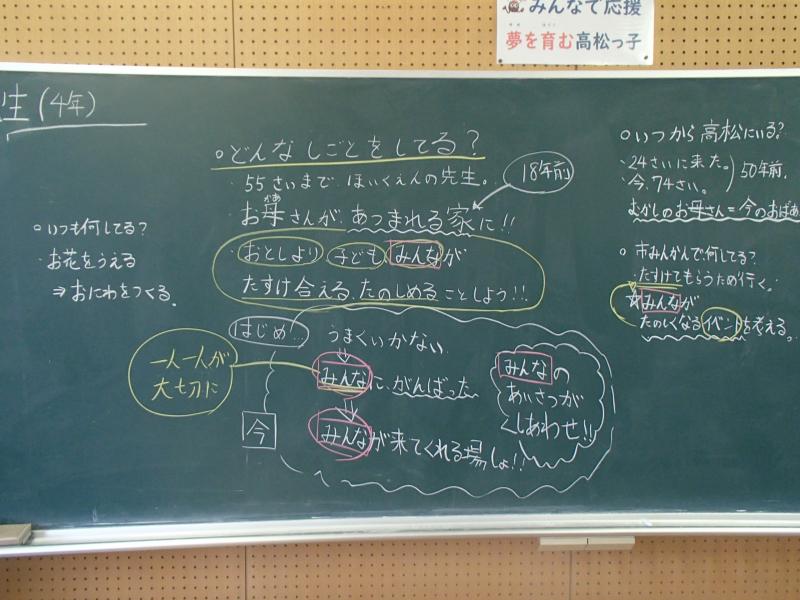 みんなで応援
夢を育む高松っ子
生(4年)
いつも何してる?
お花をうえる
⇒おにわをつくる。
どんなしごとをしてる?
・55さいまで ほいくえんの先生。
18年前
かあ
お母さんが、あつまれる家に!!
・おとしより 子ども みんなが
たすけ合える、たのしめることしよう!!
はじめ… うまくいかない
みんなに、がんばった
みんなが来てくれる場しょ!!
今
一人一人が
大切に
みんなの
あいさつが
しあわせ!!
いつから高松にいる?
・24さいに来た。
・今、74さい。
50年前.
むかしのお母さん=今のおばあ
市みんかんで何してる?
・たすけてもらうため行く。
☆みんなが
たのしくなるイベントを考える。